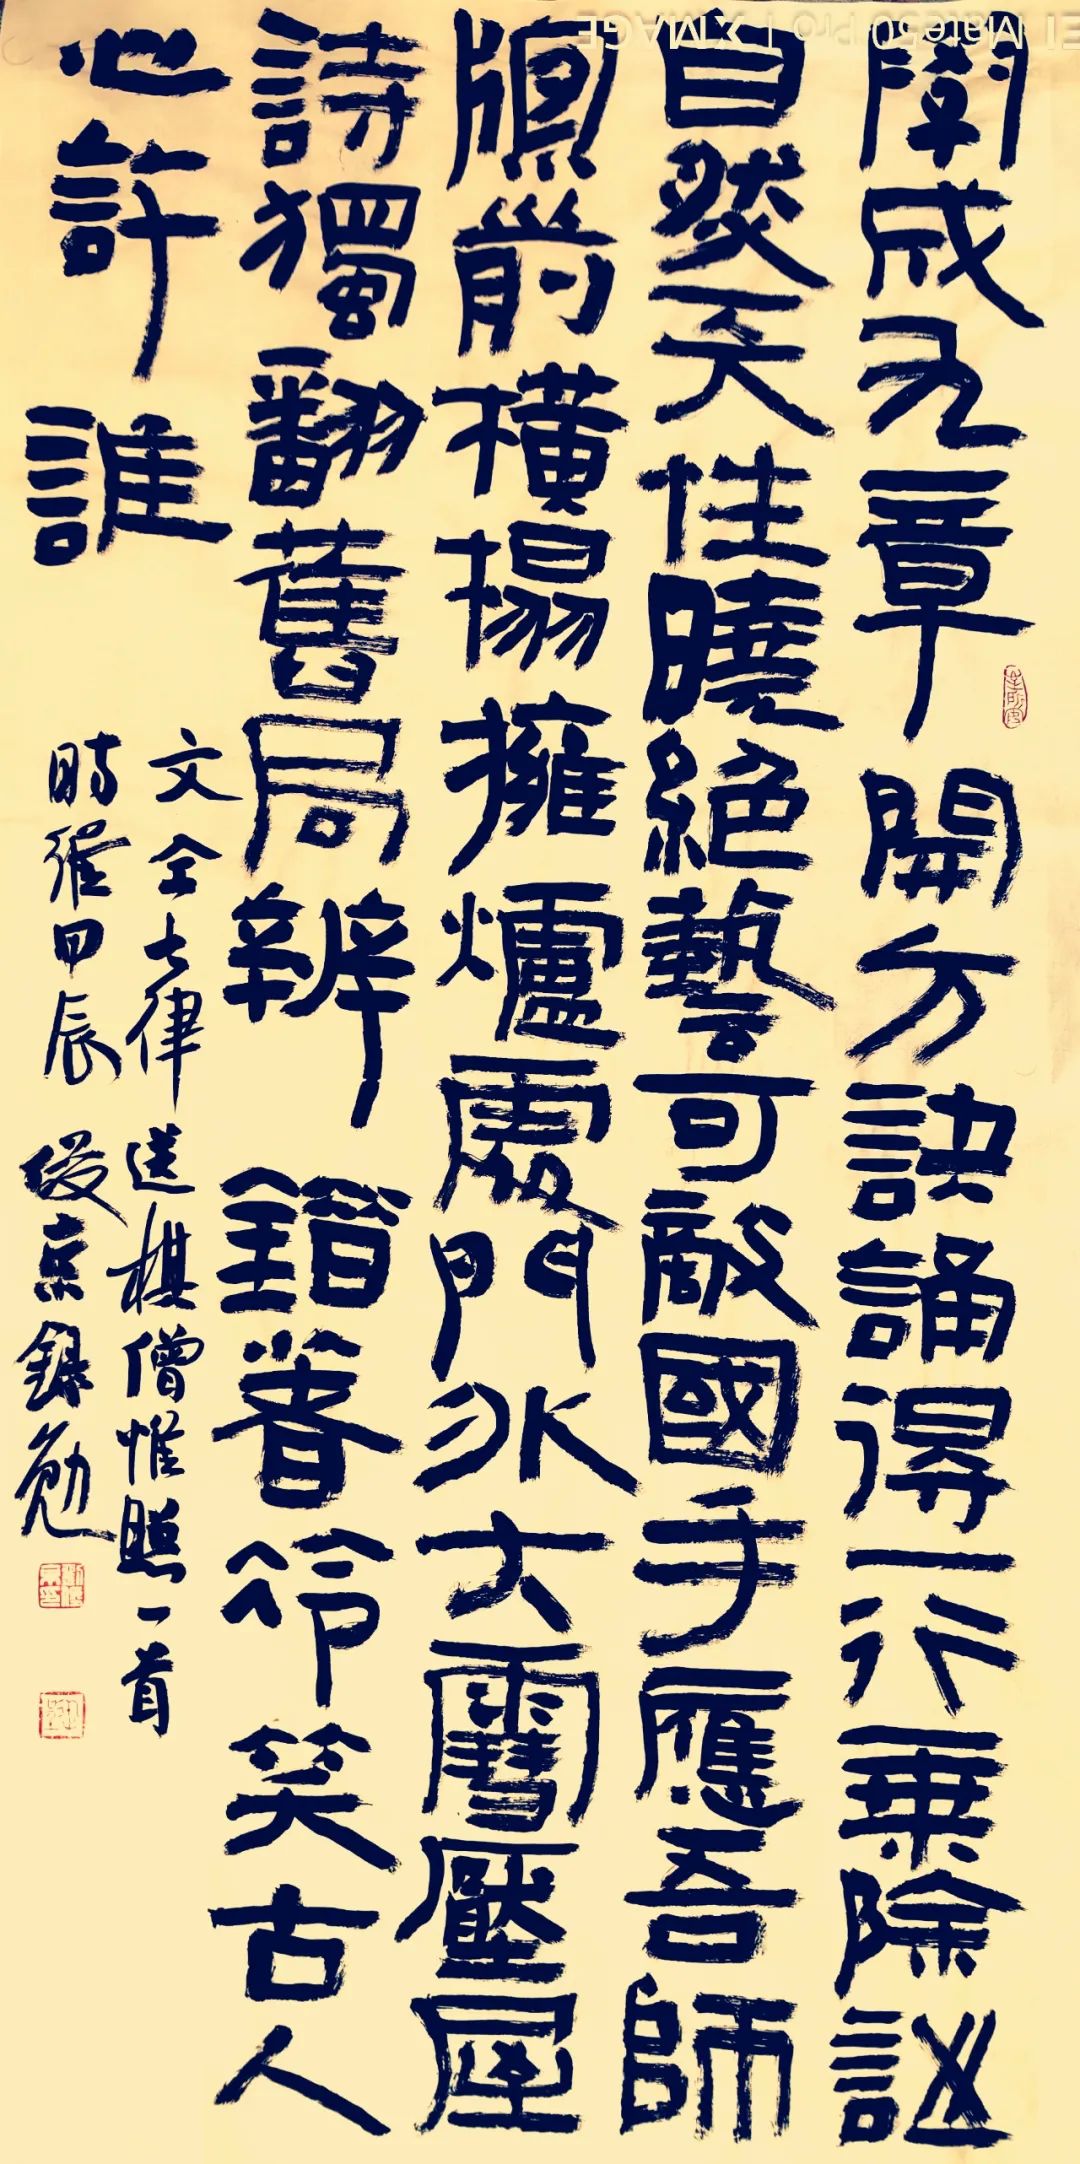 學成九章開方訣誦得一行乘除
自然天性曉絕藝可敵國手應吾師
牕前橫榻擁爐處門外大雪壓屋
詩獨翻舊局辨錯著冷笑古人
心許誰
文仝七律送棋僧惟照一首
時維甲辰俊京錄勉
EI Mate50 Pro | XMAGE